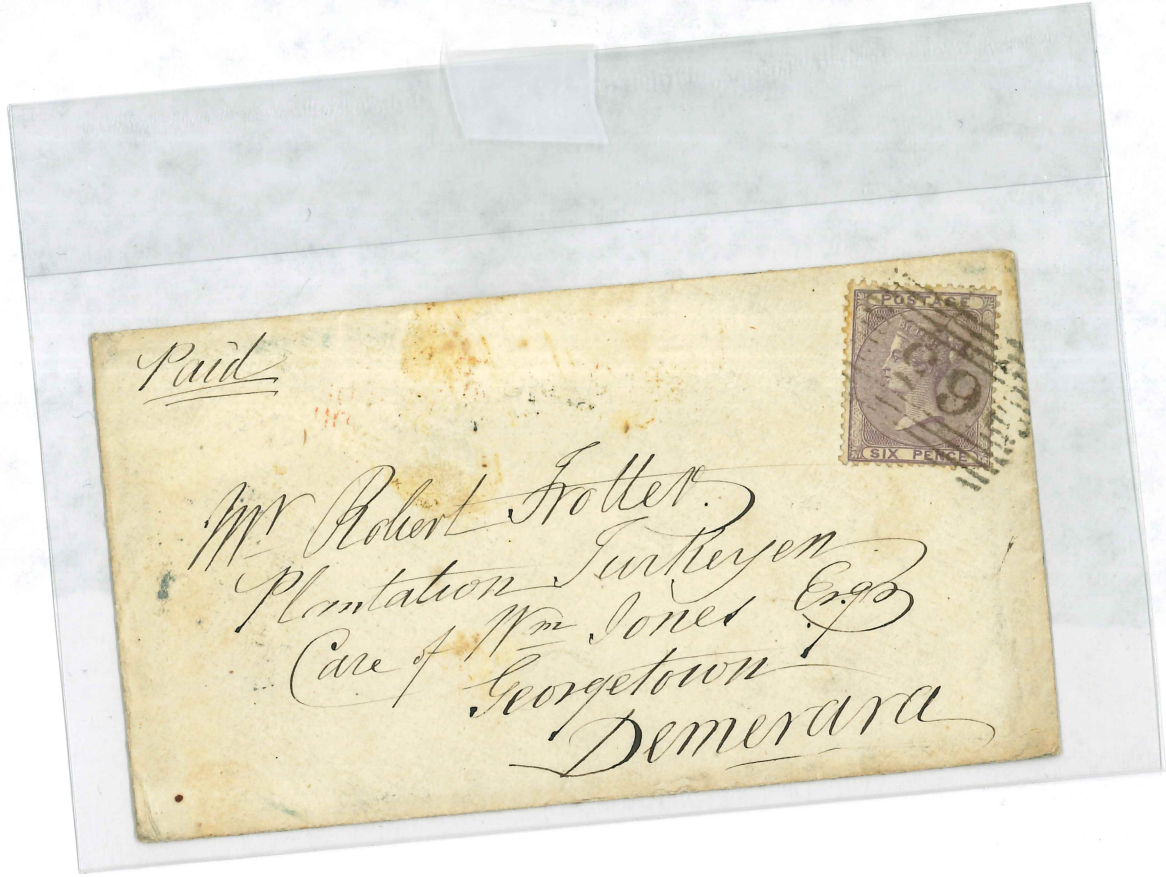 POSTAGE
SIX PENCE
Paid
Mr Robert Trotter.
Plantation Turkeyen
Care of Wm Jones Esqr
Georgetown
Demerara